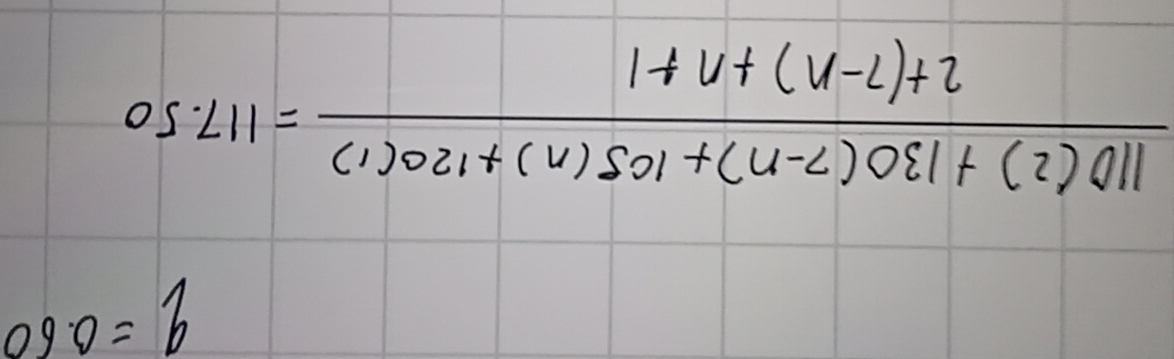 q = 0.60
110(2) + 130(7-n) + 105(n) + 120(1)
= 117.50
2+(7-n)+n+1